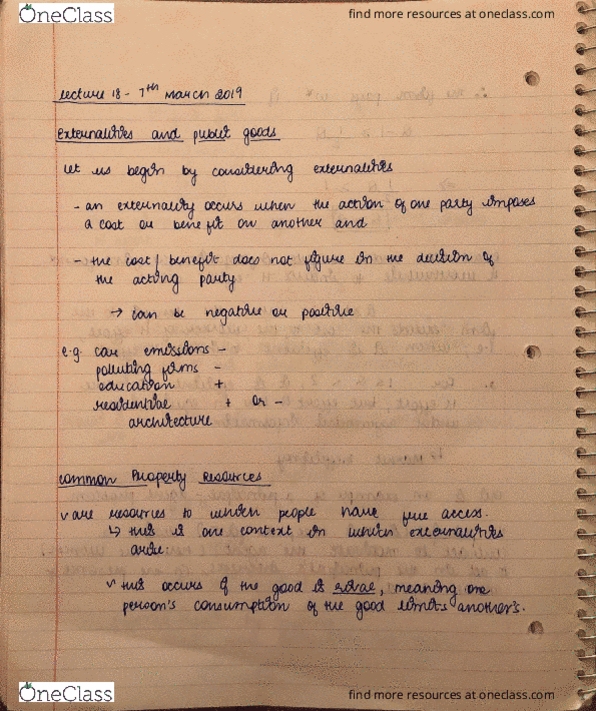 OneClass
find more resources at oneclass.com
Lecture 18 - 7th March 2019
Externalities and public goods
Let us begin by considering externalities
- an externality occurs when the action of one party imposes
a cost or benefit on another and
- the cost/benefit does not figure in the decision of
the acting party
→ can be negative or positive
e.g. car emissions -
polluting firms -
education +
residential + or -
architecture
Common Property Resources
are resources to which people have free access.
↳ this is one context in which externalities
arise.
this occurs if the good is rival, meaning one
person's consumption of the good limits another's.
OneClass
find more resources at oneclass.com